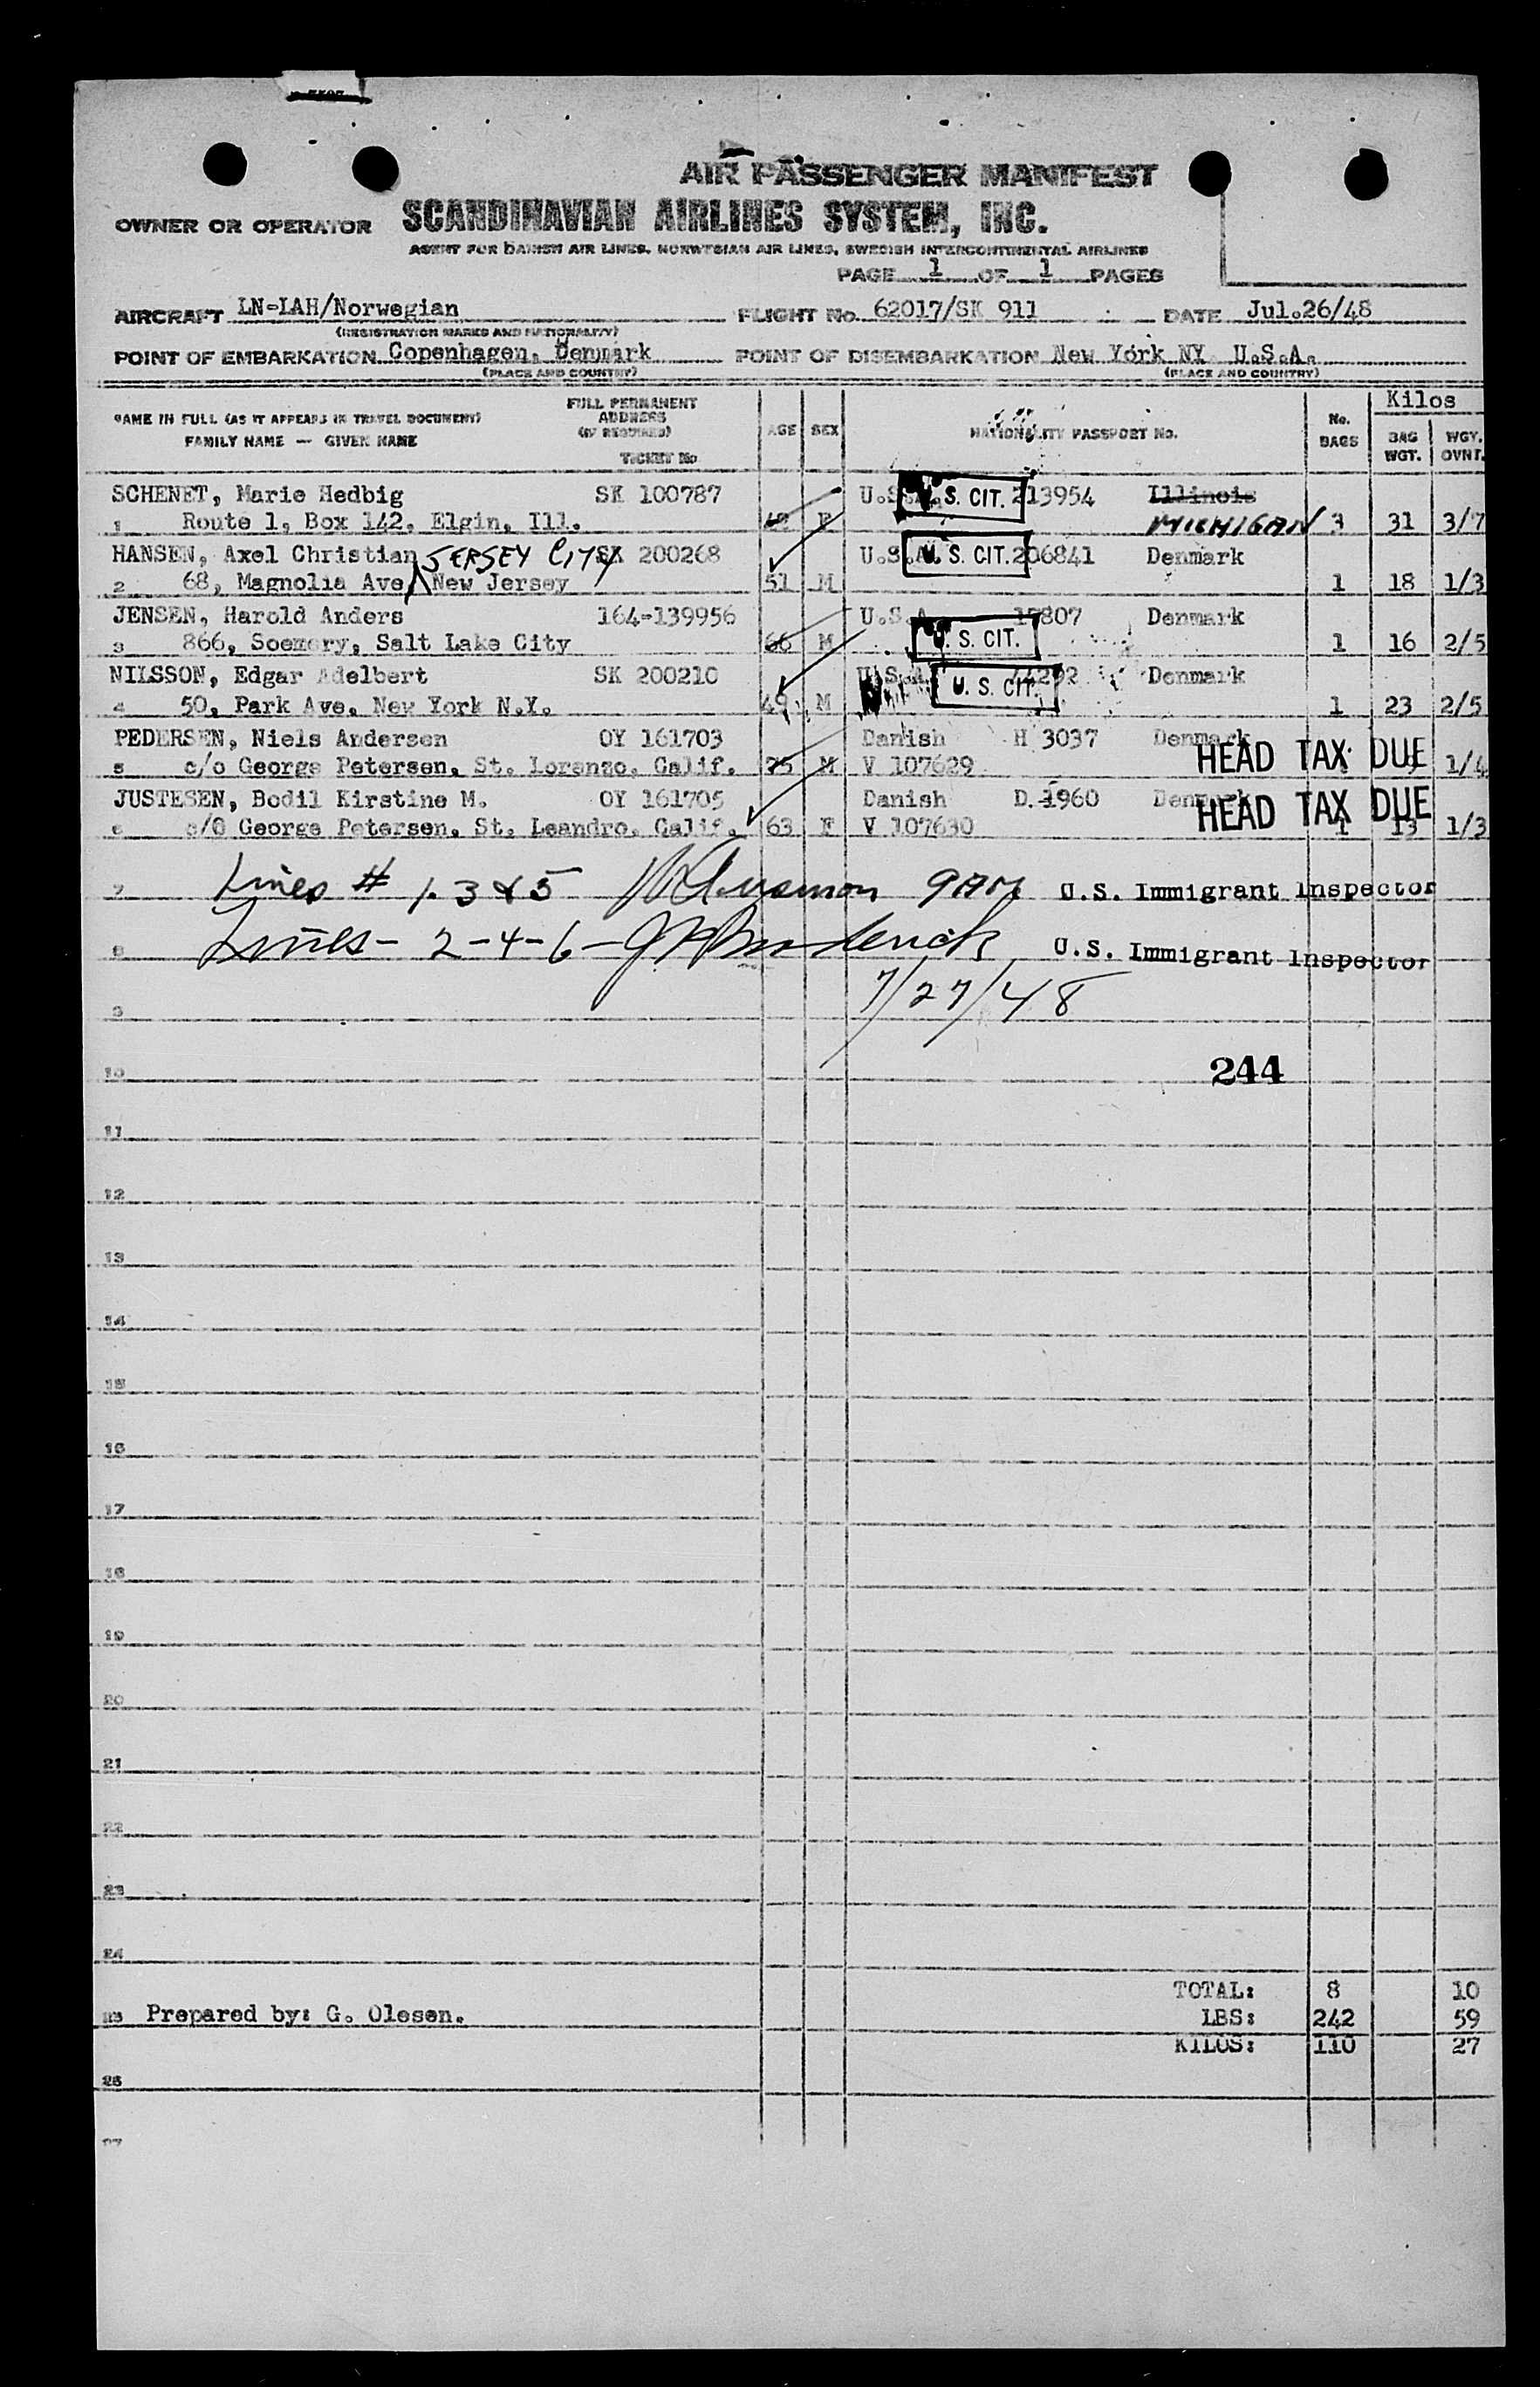 AIR PASSENGER MANIFEST
OWNER OR OPERATOR SCANDINAVIAN AIRLINES SYSTEM, INC.
AGENT FOR DANISH AIR LINES, NORWEGIAN AIR LINES, SWEDISH INTERCONTINENTAL AIRLINES
PAGE 1 OF 1 PAGES
AIRCRAFT LN-IAH/Norwegian FLIGHT No. 62017/SK 911 DATE Jul.26/48
(REGISTRATION MARKS AND NATIONALITY)
POINT OF EMBARKATION Copenhagen, Denmark POINT OF DISEMBARKATION New York NY U.S.A.
(PLACE AND COUNTRY) (PLACE AND COUNTRY)
NAME IN FULL (AS IT APPEARS IN TRAVEL DOCUMENT) FAMILY NAME — GIVEN NAME
FULL PERMANENT ADDRESS (IF REQUIRED) TICKET No
AGE SEX NATIONALITY PASSPORT No. No. BAGS Kilos BAG WGT. WGT. OVNT.
SCHENET, Marie Hedbig SK 100787 U.S.A. U. S. CIT. 213954 Illinois
1 Route 1, Box 142, Elgin, Ill. F MICHIGAN 3 31 3/7
HANSEN, Axel Christian JERSEY CITY SK 200268 U.S.A. U. S. CIT. 206841 Denmark
2 68, Magnolia Ave, New Jersey 51 M 1 18 1/3
JENSEN, Harold Anders 164-139956 U.S.A. Denmark
3 866, Soemery, Salt Lake City 66 M U. S. CIT. 1 16 2/5
NILSSON, Edgar Adelbert SK 200210 U.S.A. Denmark
4 50, Park Ave. New York N.Y. 49 M U. S. CIT. 1 23 2/5
PEDERSEN, Niels Andersen OY 161703 Danish H 3037 Denmark
5 c/o George Petersen, St. Lorenzo, Calif. 75 M V 107629 HEAD TAX DUE 1/4
JUSTESEN, Bodil Kirstine M. OY 161705 Danish D. 1960 Denmark
6 c/O George Petersen, St. Leandro, Calif. 63 F V 107630 HEAD TAX DUE 1 13 1/3
7 Lines # 1. 3 & 5 U.S. Immigrant Inspector
8 Lines - 2 - 4 - 6 - U.S. Immigrant Inspector
7/27/48
9
244
10
11
12
13
14
15
16
17
18
19
20
21
22
23
24
TOTAL: 8 10
25 Prepared by: G. Olesen. LBS: 242 59
KILOS: 110 27
26
27